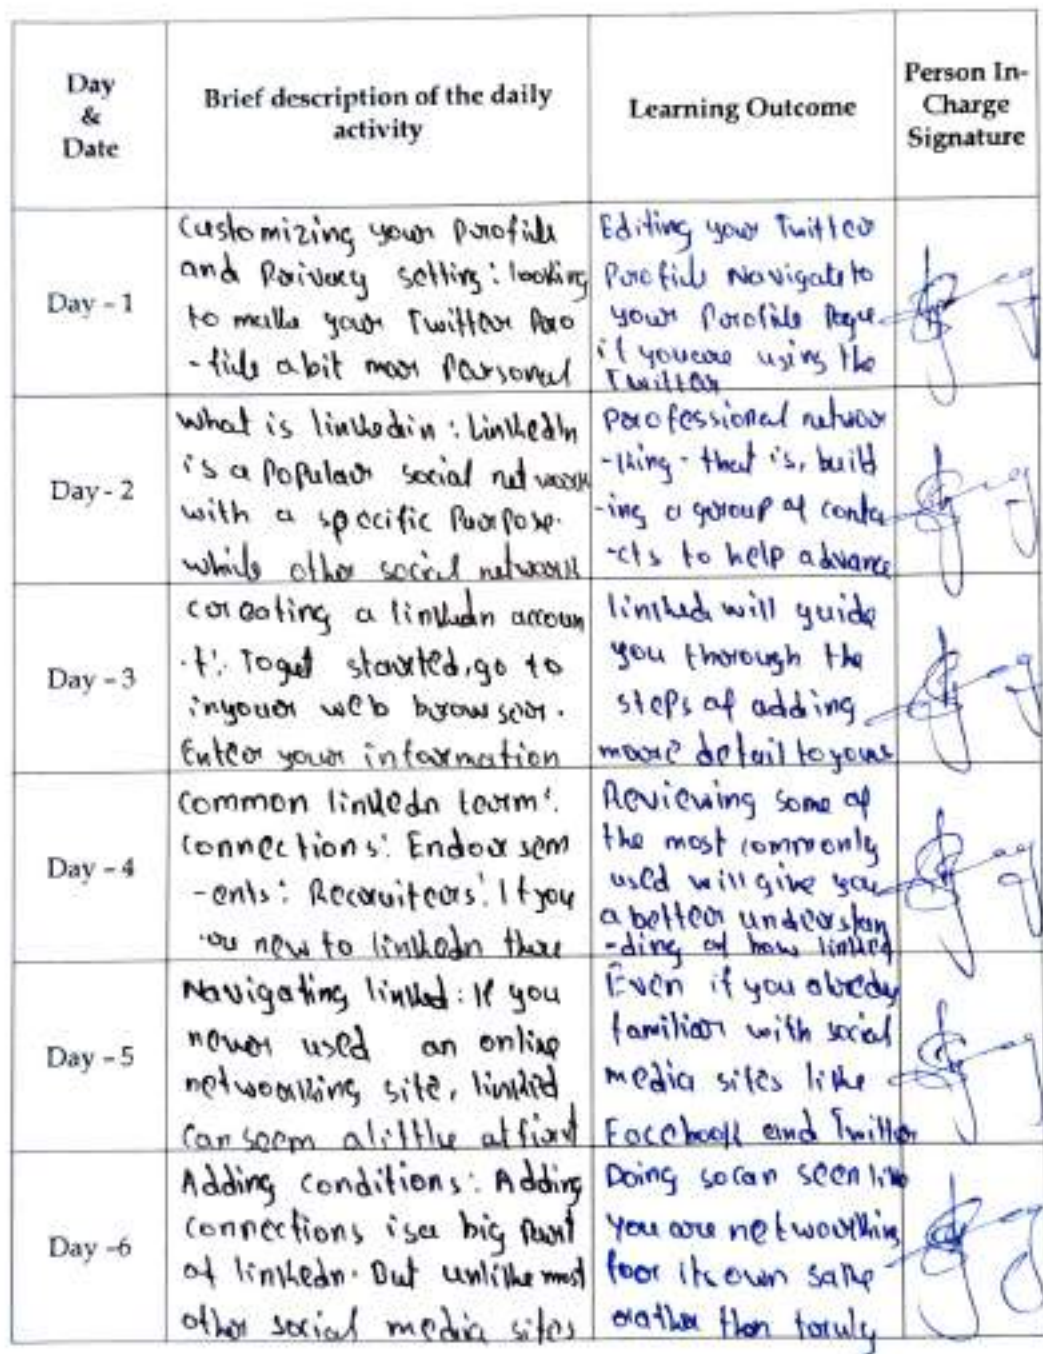 Day
&
Date
Brief description of the daily
activity
Learning Outcome
Person In-
Charge
Signature
Day - 1
Customizing your Profile
and Privacy setting : looking
to make your Twitter Pro
- file a bit mor Personal
Editing your Twitter
Profile Navigate to
your Profile Page
if you are using the
Twitter
Day - 2
What is linkedin : LinkedIn
is a Popular social network
with a specific Purpose.
while other social network
Professional networ
-king - that is, build
-ing a group of conta
-cts to help advance
Day - 3
creating a linkedn accoun
-t: To get started, go to
in your web browser.
Enter your information
linked will guide
you thorough the
steps of adding
more detail to your
Day - 4
Common linkedn term :
connections : Endorsem
-ents : Recruiters : If you
are new to linkedn there
Reviewing some of
the most commonly
used will give you
a better understan
-ding of how linked
Day - 5
Navigating linked : If you
never used an online
networking site, linked
can seem a little at first
Even if you already
familiar with social
media sites like
Facebook and Twitter
Day -6
Adding conditions : Adding
connections is a big Part
of linkedn. But unlike most
other social media sites
Doing so can seen like
you are networking
for its own sake
rather than truly